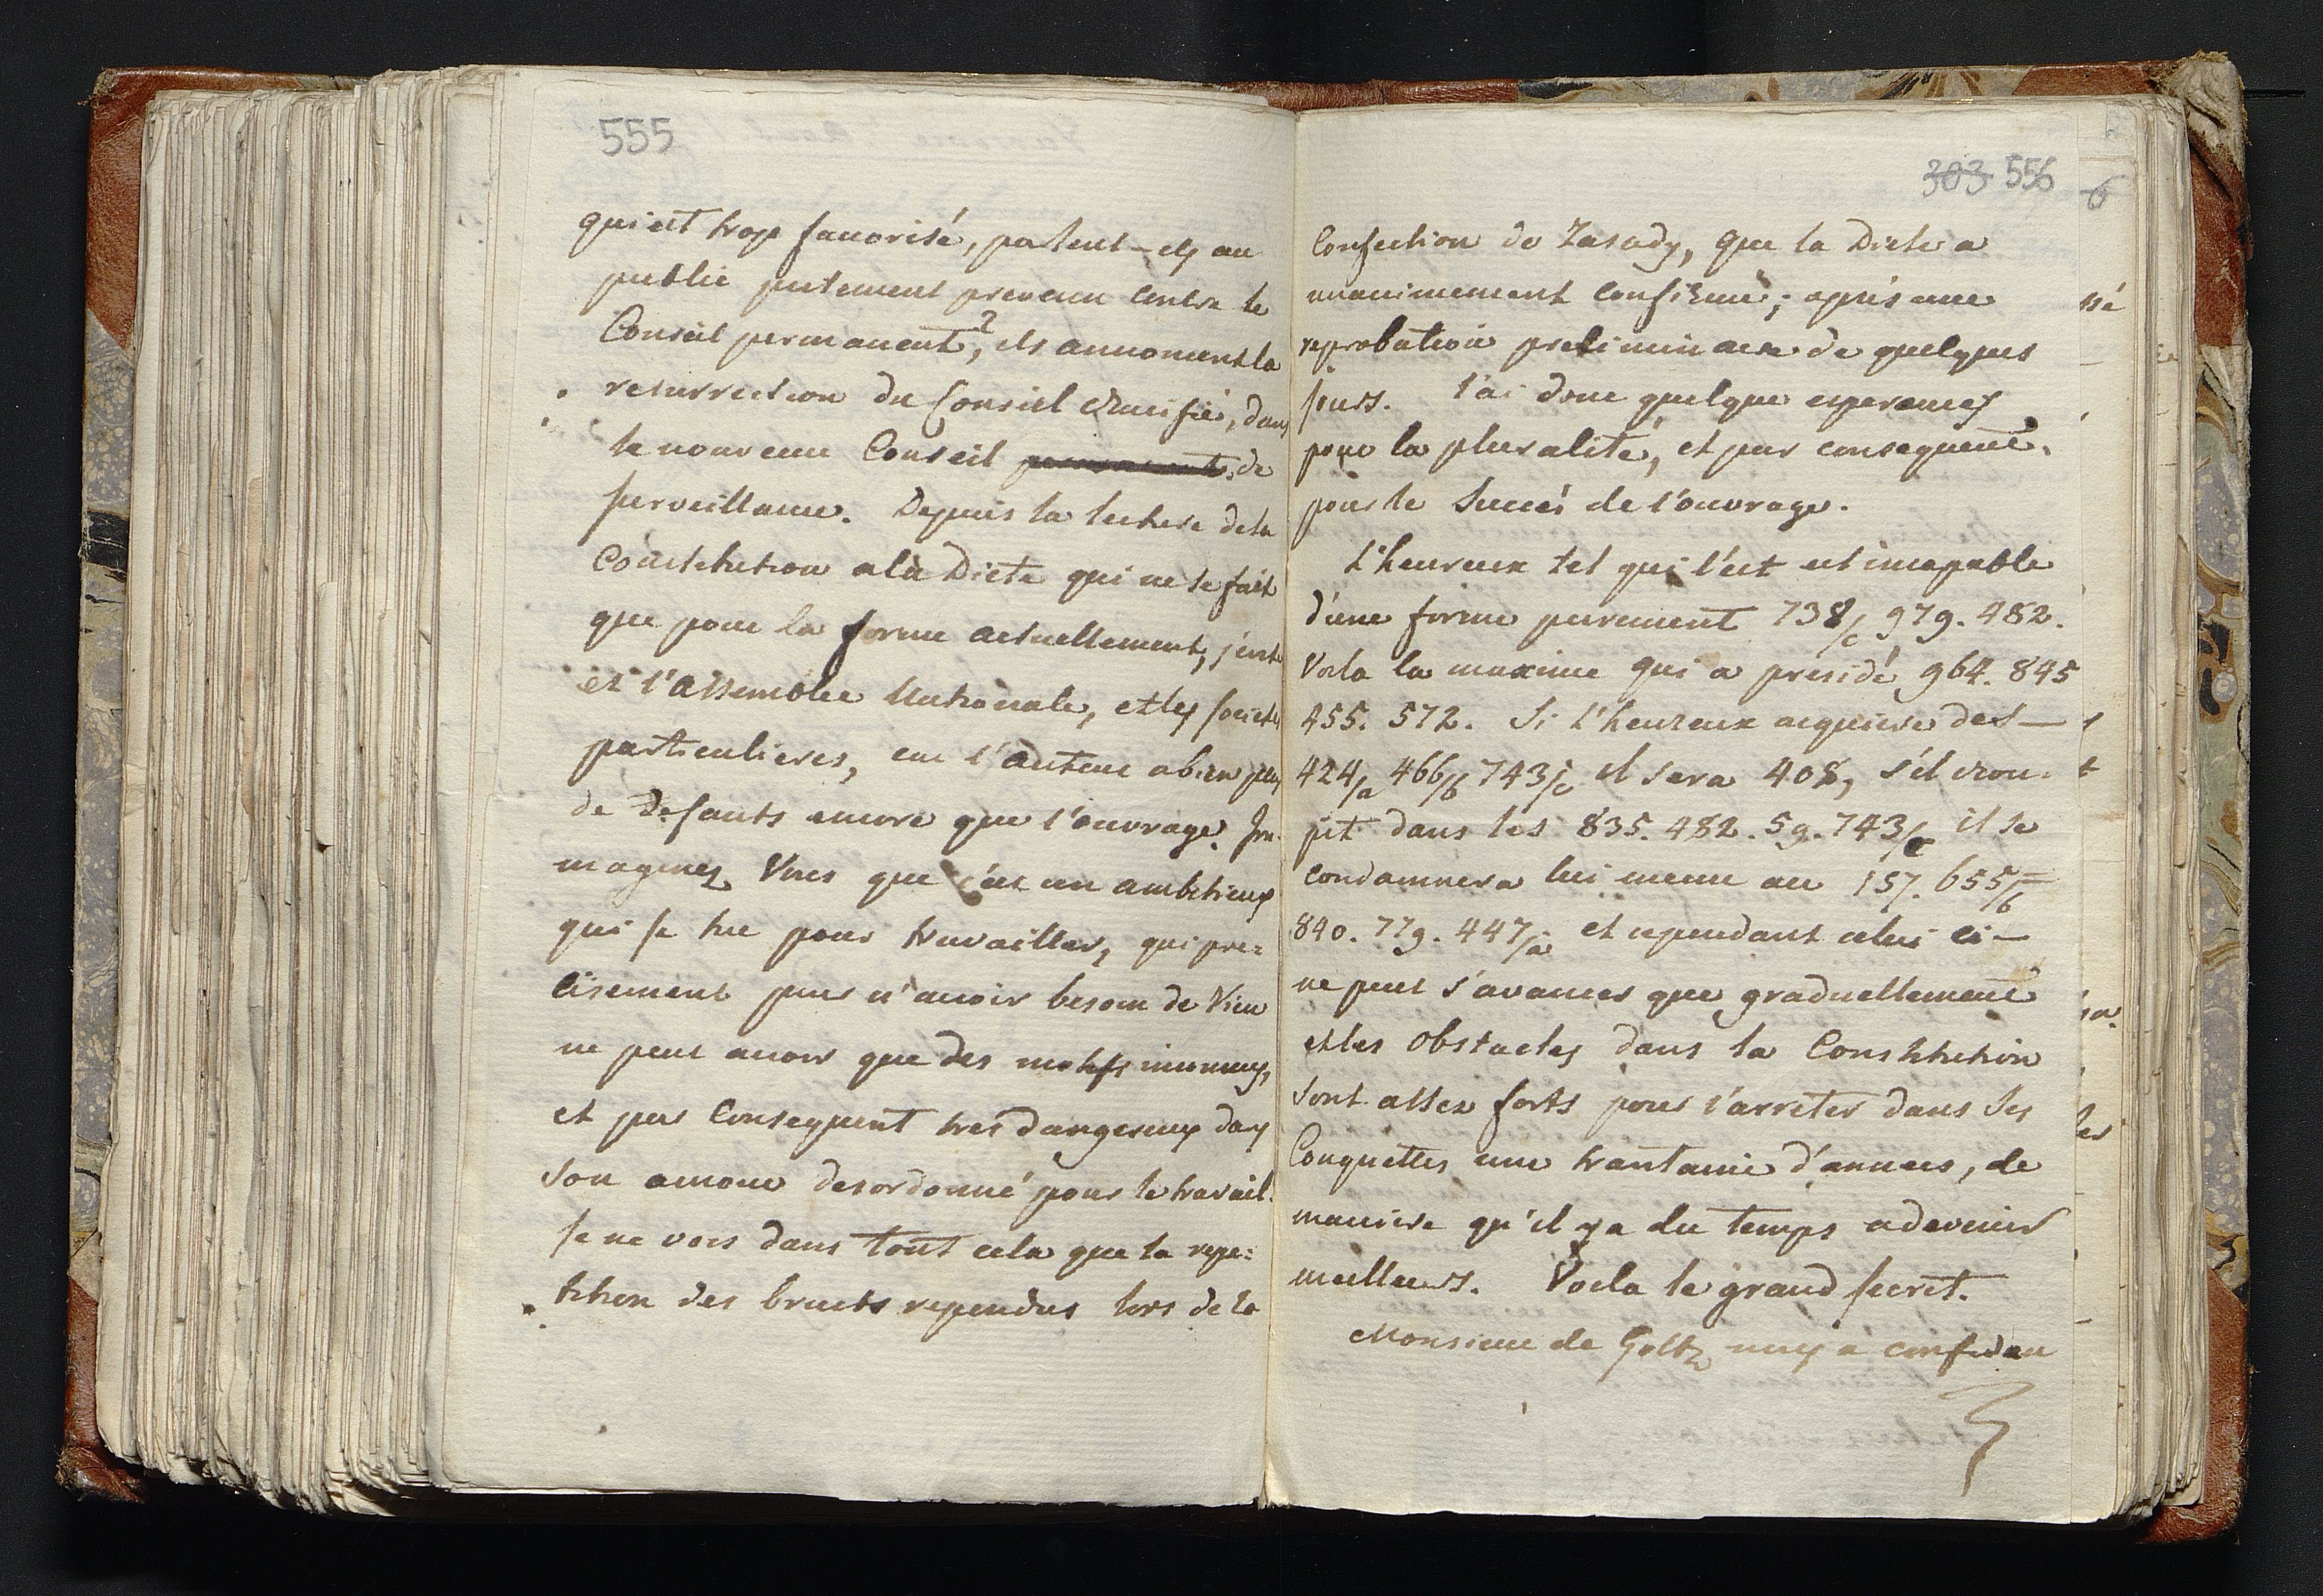 555
qui est trop favorisé, parlent-ils au
public justement prevenu contre le
Conseil permanent?, ils annoncent la
resurrection du Conseil crucifié, dans
le nouveau Conseil permanent de
surveillance. Depuis la lecture de la
Constitution a la Diete qui ne se fait
que pour la forme actuellement,
et l'Assemblee Nationale, et les societés
particulieres, car l'auteur a bien plus
de defauts encore que l'ouvrage. Im-
maginez Vous que c'est un ambitieux
qui se tue pour travailler, qui pre-
cisement pour n'avoir besoin de rien
ne peut avoir que des motifs inconnus,
et par Consequent tres dangereux dans
son amour desordonné pour le travail.
Je ne vois dans tout cela que la repe-
tition des bruits rependus lors de la
303 556
Confection de Zasady, que la Diete a
unanimement confirmé; après une
reprobation preliminaire de quelques
jours. J'ai donc quelque esperances
pour la pluralité, et par consequent
pour le Succés de l'ouvrage.
L'heureux tel qui l'est est incapable
d'une forme purement 738/c 979. 482.
Voila la maxime qui a presidé 964. 845
455. 572. Si l'heureux acquiere des —
424/a 466/b 743/c il sera 408, s'il crou-
pit dans les 835. 482. 59. 743/c il se
condamnera lui meme au 157. 655/b
840. 779. 447/a et cependant celui ci —
ne peut s'avancer que graduellement
et les Obstacles dans la Constitution
sont assez forts pour l'arreter dans ses
Conquettes une trantaine d'annees, de
maniere qu'il y a du temps a devenir
meilleurs. Voila le grand secret.
Monsieur de Goltz